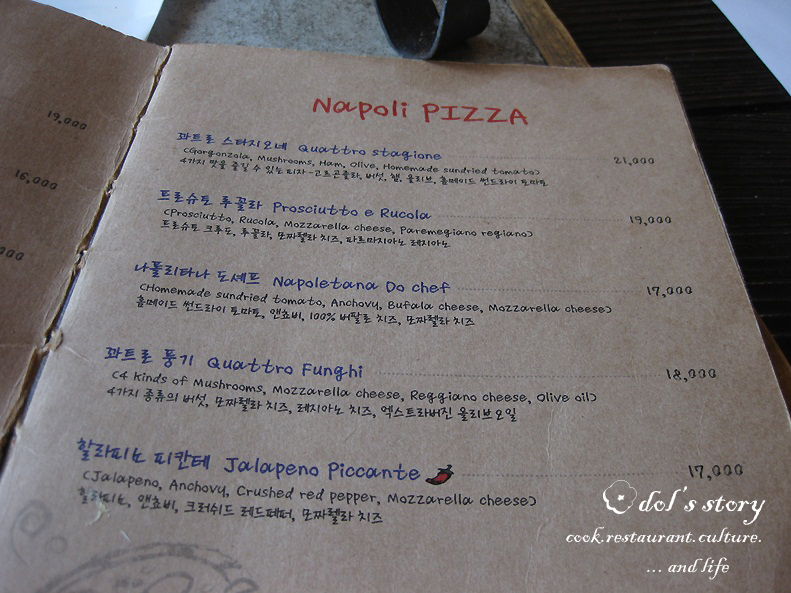 19,000
16,000
Napoli PIZZA
콰트로 스타지오네 Quattro stagione 21,000
(Gorgonzola, Mushrooms, Ham, Olive, Homemade sundried tomato)
4가지 맛을 즐길 수 있는 피자-고르곤졸라, 버섯, 햄, 올리브, 홈메이드 썬드라이 토마토
프로슈토 루꼴라 Prosciutto e Rucola 19,000
(Prosciutto, Rucola, Mozzarella cheese, Paremegiano regiano)
프로슈토 크루도, 루꼴라, 모짜렐라 치즈, 파르마지아노 레지아노
나폴리타나 도셰프 Napoletana Do chef 17,000
(Homemade sundried tomato, Anchovy, Bufala cheese, Mozzarella cheese)
홈메이드 썬드라이 토마토, 앤쵸비, 100% 버팔로 치즈, 모짜렐라 치즈
콰트로 풍기 Quattro Funghi 18,000
(4 kinds of Mushrooms, Mozzarella cheese, Reggiano cheese, Olive oil)
4가지 종류의 버섯, 모짜렐라 치즈, 레지아노 치즈, 엑스트라버진 올리브오일
할라피뇨 피칸테 Jalapeno Piccante 17,000
(Jalapeno, Anchovy, Crushed red pepper, Mozzarella cheese)
할라피뇨, 앤쵸비, 크러쉬드 레드페퍼, 모짜렐라 치즈
dol's story
cook.restaurant.culture.
... and life